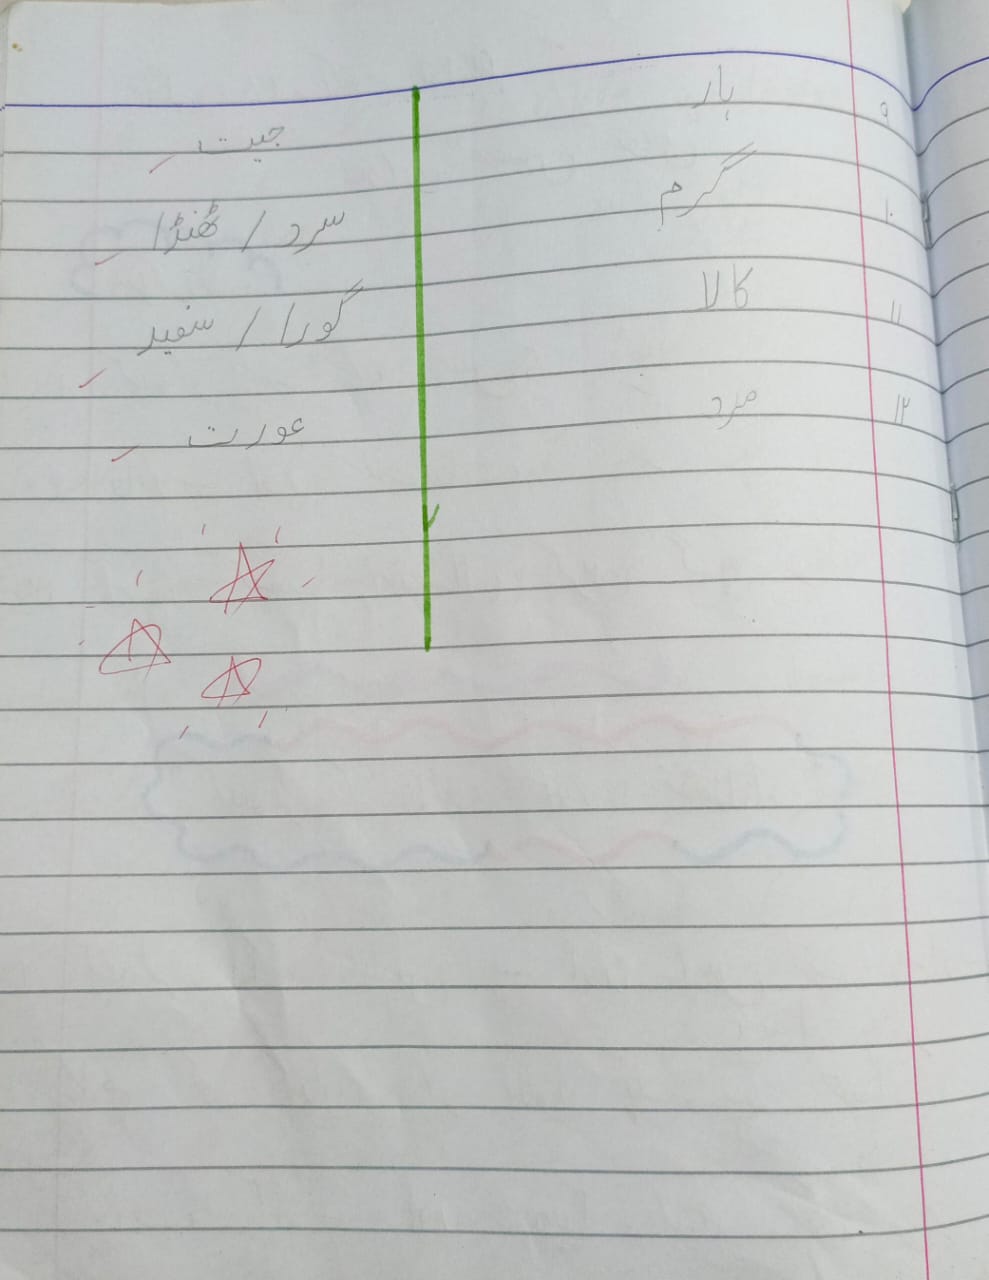 ۹ ہار جیت
۱۰ گرم سرد / ٹھنڈا
۱۱ کالا گورا / سفید
۱۲ مرد عورت